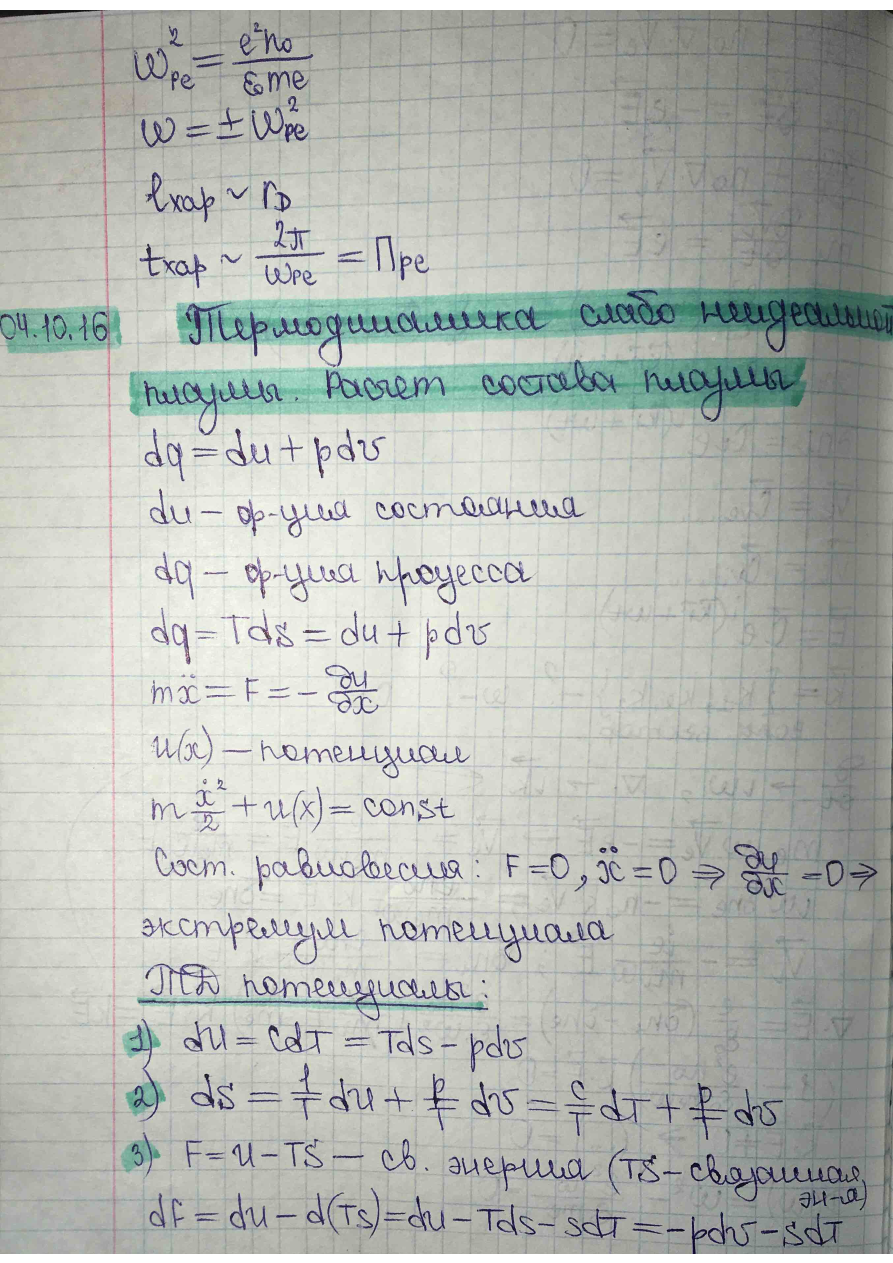 ω²pe = e²n₀/ε₀me
ω = ± ω²pe
lхар ~ rD
tхар ~ 2π/ωpe = Пpe
04.10.16 Термодинамика слабо неидеальной
плазмы. Расчет состава плазмы
dq = du + pdv
du – ф-ция состояния
dq – ф-ция процесса
dq = Tds = du + pdv
mẍ = F = – ∂u/∂x
u(x) – потенциал
m ẋ²/2 + u(x) = const
Сост. равновесия: F = 0, ẍ = 0 ⇒ ∂u/∂x = 0 ⇒
экстремум потенциала
ТД потенциалы:
1) du = cdT = Tds – pdv
2) ds = 1/T du + p/T dv = c/T dT + p/T dv
3) F = u – TS – св. энергия (TS – связанная
эн-я)
dF = du – d(TS) = du – Tds – sdT = – pdv – sdT